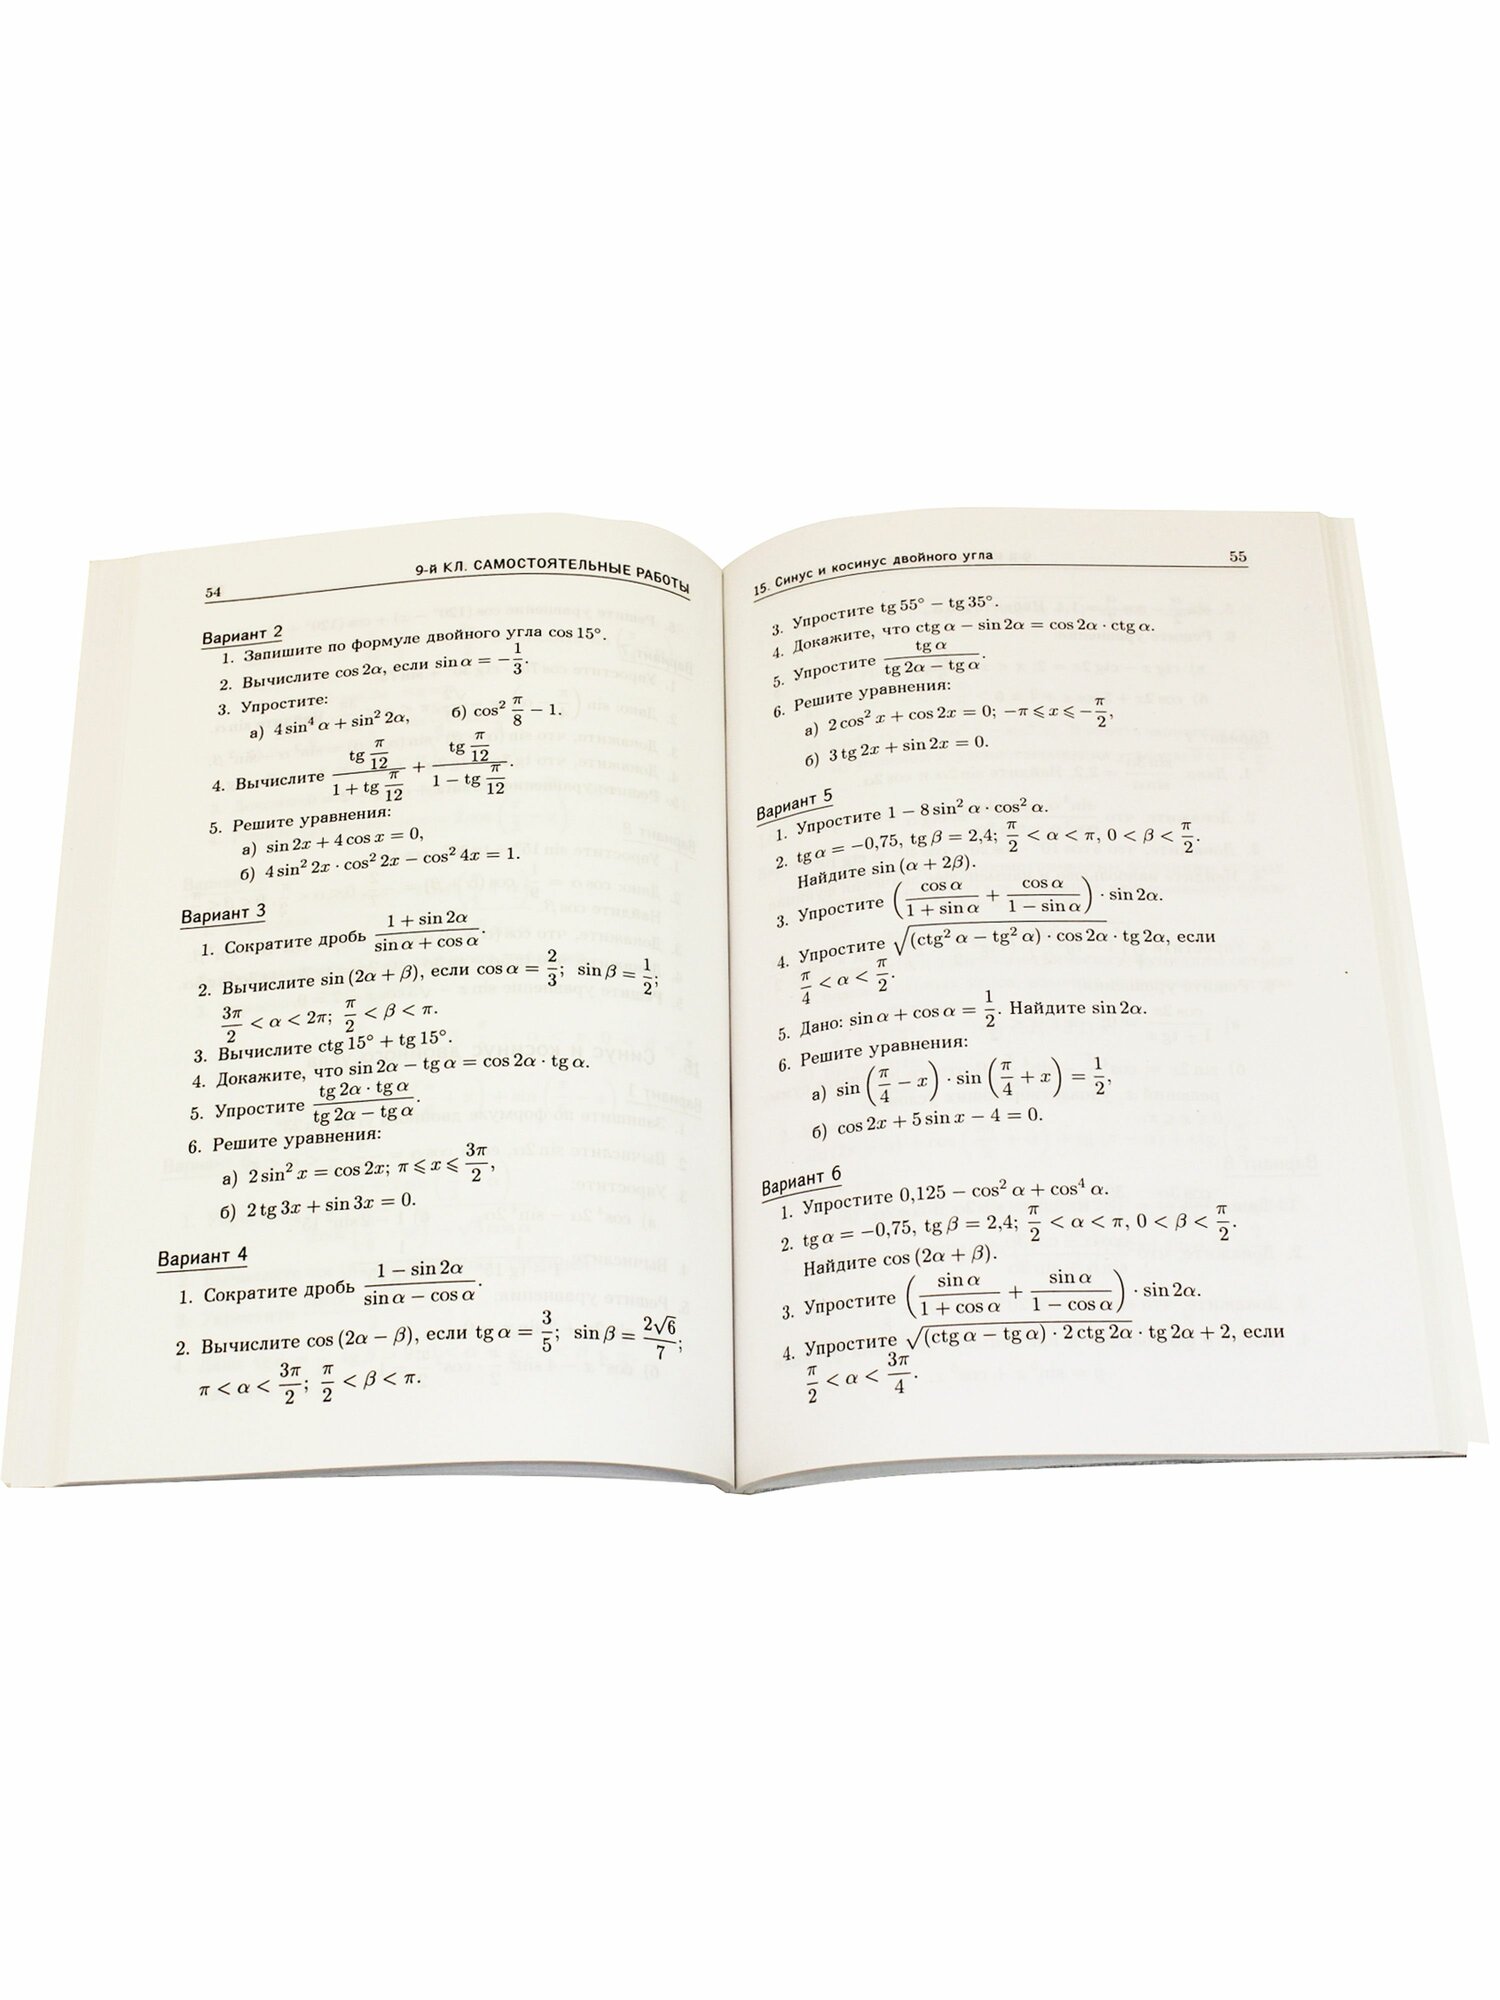 54
9-й КЛ. САМОСТОЯТЕЛЬНЫЕ РАБОТЫ
Вариант 2
1. Запишите по формуле двойного угла cos 15°.
2. Вычислите cos 2α, если sin α = −1/3.
3. Упростите:
а) 4 sin⁴ α + sin² 2α, б) cos² π/8 − 1.
4. Вычислите (tg π/12)/(1 + tg π/12) + (tg π/12)/(1 − tg π/12).
5. Решите уравнения:
а) sin 2x + 4 cos x = 0,
б) 4 sin² 2x · cos² 2x − cos² 4x = 1.
Вариант 3
1. Сократите дробь (1 + sin 2α)/(sin α + cos α).
2. Вычислите sin (2α + β), если cos α = 2/3; sin β = 1/2;
3π/2 < α < 2π; π/2 < β < π.
3. Вычислите ctg 15° + tg 15°.
4. Докажите, что sin 2α − tg α = cos 2α · tg α.
5. Упростите (tg 2α · tg α)/(tg 2α − tg α).
6. Решите уравнения:
а) 2 sin² x = cos 2x; π ⩽ x ⩽ 3π/2,
б) 2 tg 3x + sin 3x = 0.
Вариант 4
1. Сократите дробь (1 − sin 2α)/(sin α − cos α).
2. Вычислите cos (2α − β), если tg α = 3/5; sin β = 2√6/7;
π < α < 3π/2; π/2 < β < π.
15. Синус и косинус двойного угла
55
3. Упростите tg 55° − tg 35°.
4. Докажите, что ctg α − sin 2α = cos 2α · ctg α.
5. Упростите tg α/(tg 2α − tg α).
6. Решите уравнения:
а) 2 cos² x + cos 2x = 0; −π ⩽ x ⩽ −π/2,
б) 3 tg 2x + sin 2x = 0.
Вариант 5
1. Упростите 1 − 8 sin² α · cos² α.
2. tg α = −0,75, tg β = 2,4; π/2 < α < π, 0 < β < π/2.
Найдите sin (α + 2β).
3. Упростите (cos α/(1 + sin α) + cos α/(1 − sin α)) · sin 2α.
4. Упростите √((ctg² α − tg² α) · cos 2α) · tg 2α, если
π/4 < α < π/2.
5. Дано: sin α + cos α = 1/2. Найдите sin 2α.
6. Решите уравнения:
а) sin (π/4 − x) · sin (π/4 + x) = 1/2,
б) cos 2x + 5 sin x − 4 = 0.
Вариант 6
1. Упростите 0,125 − cos² α + cos⁴ α.
2. tg α = −0,75, tg β = 2,4; π/2 < α < π, 0 < β < π/2.
Найдите cos (2α + β).
3. Упростите (sin α/(1 + cos α) + sin α/(1 − cos α)) · sin 2α.
4. Упростите √((ctg α − tg α) · 2 ctg 2α) · tg 2α + 2, если
π/2 < α < 3π/4.